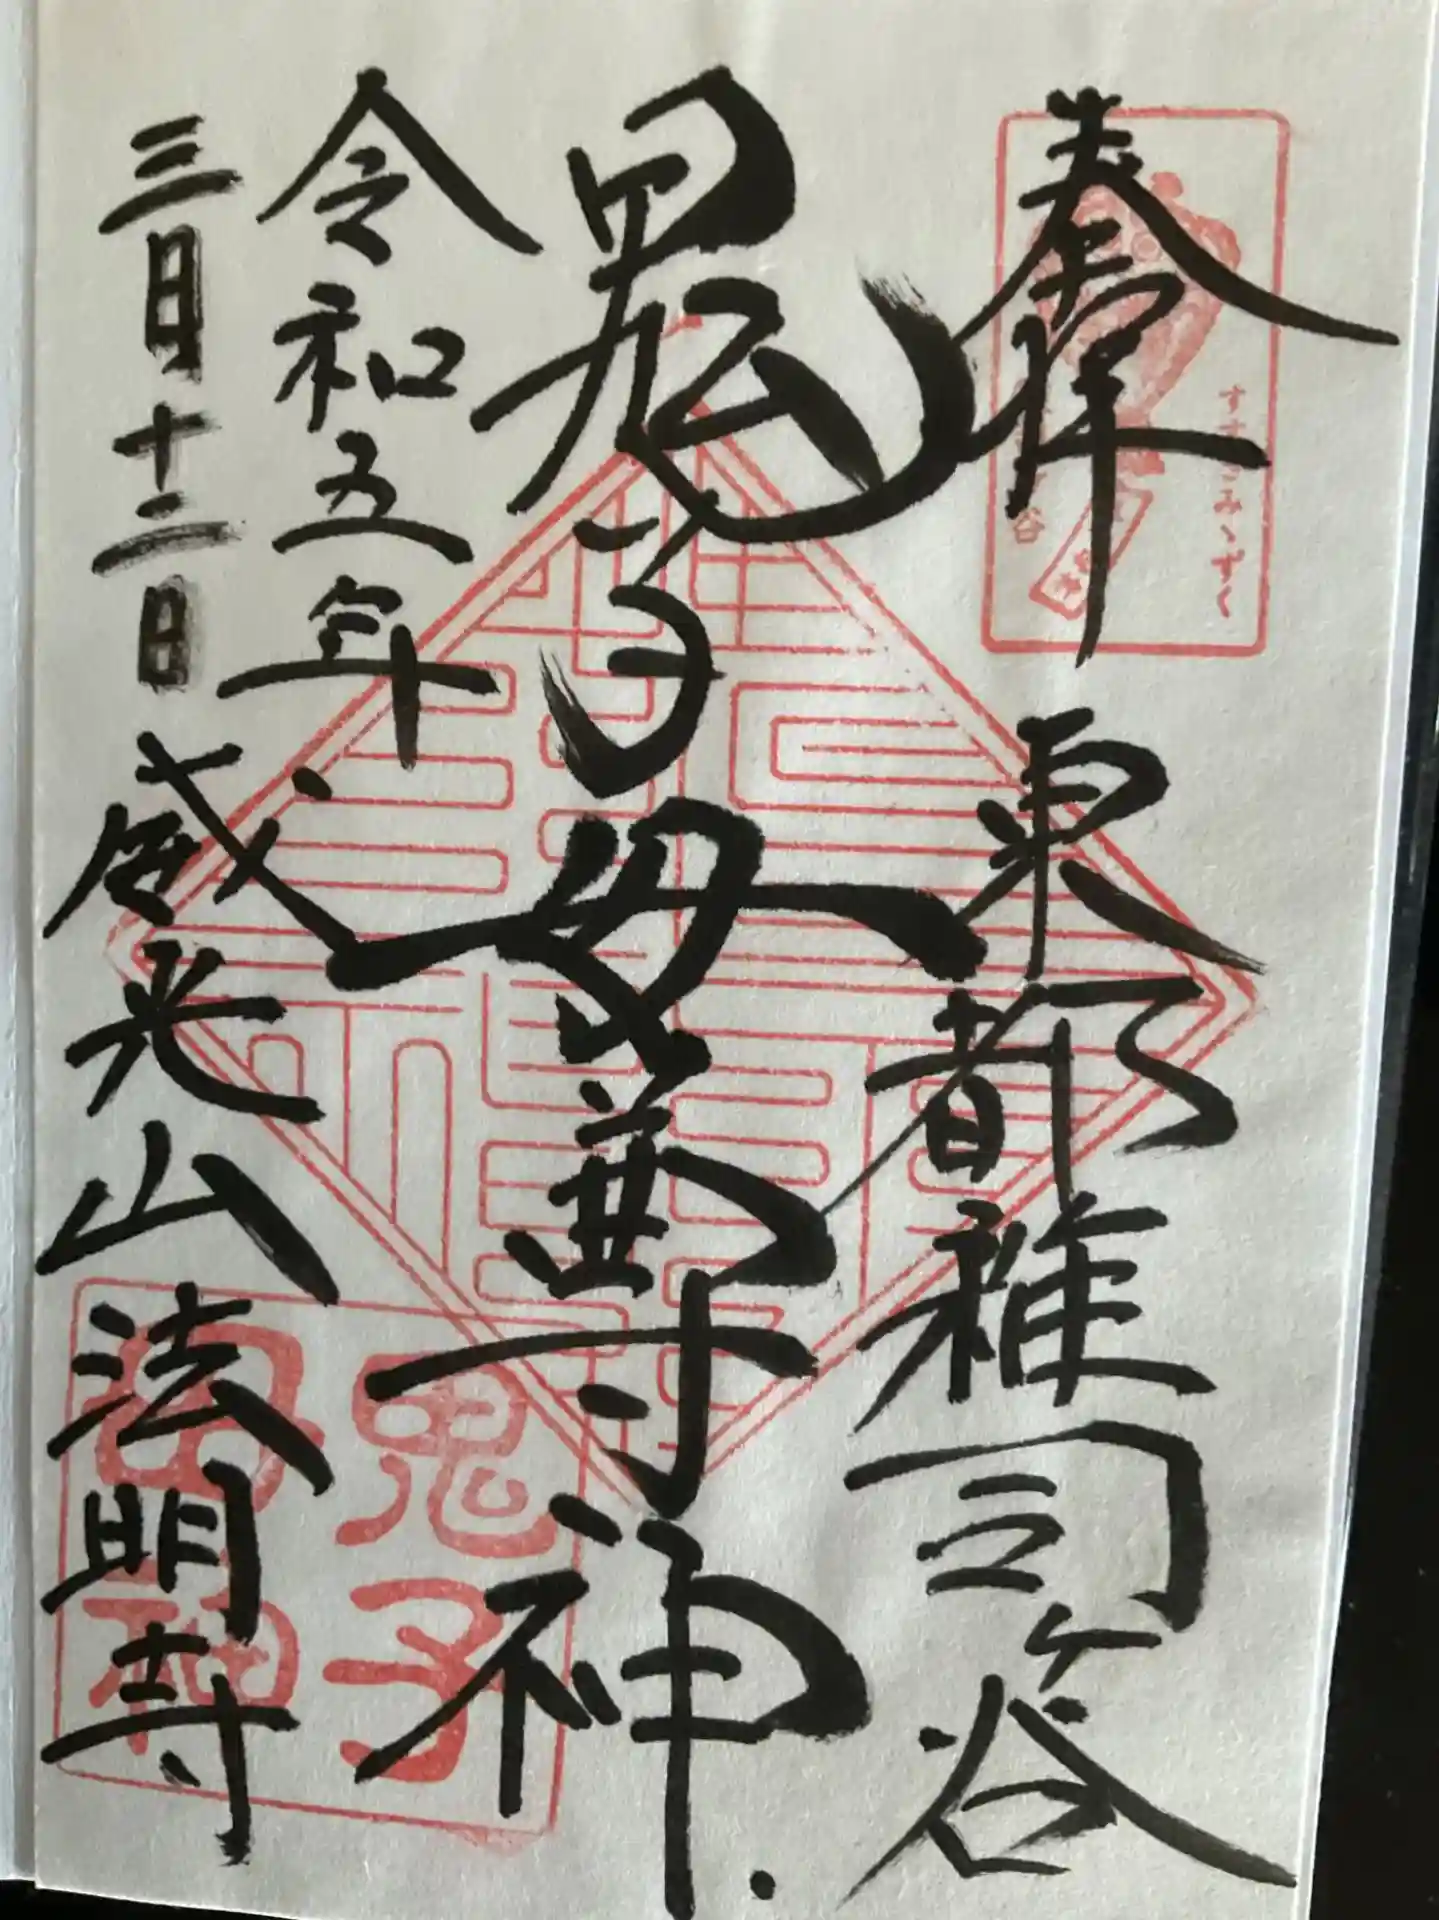 奉拝
東都雑司ヶ谷
鬼子母尊神
令和五年
三月十二日
威光山法明寺
すすきみゝずく
鬼子
母神